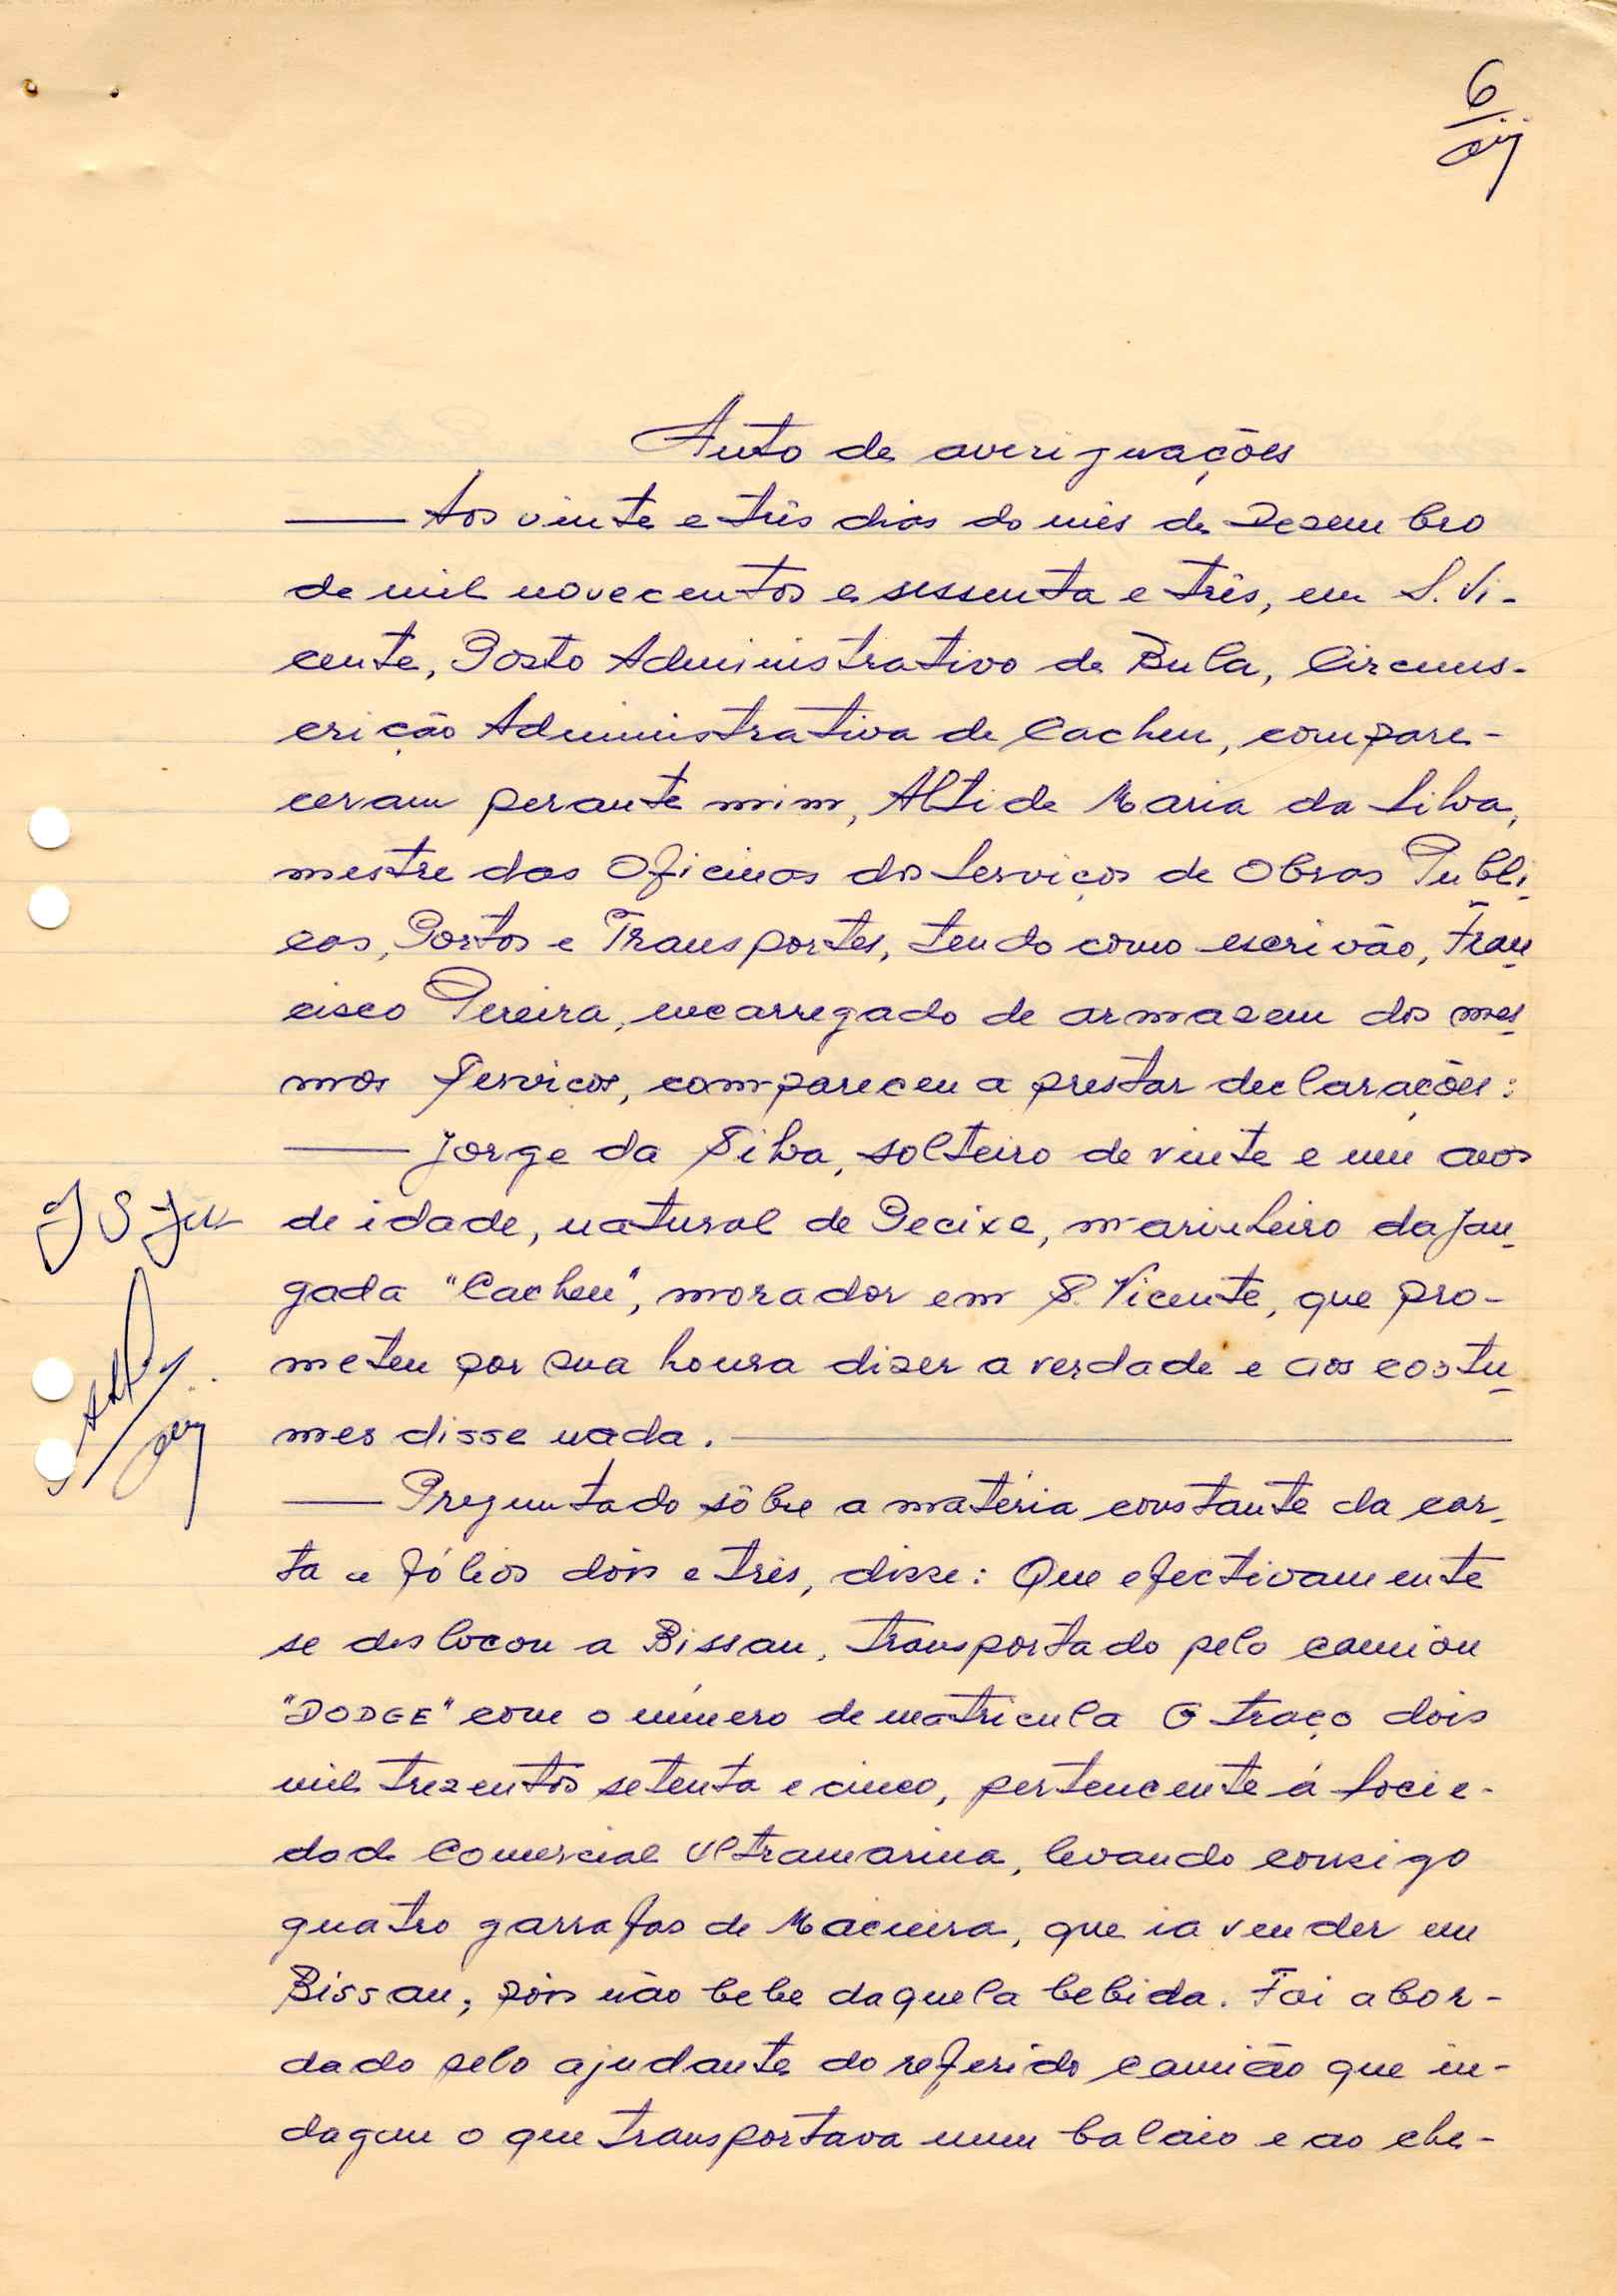 6
Auto de averiguações
Aos vinte e três dias do mês de Dezembro
de mil novecentos e sessenta e três, em S. Vi-
cente, Posto Administrativo de Bula, Circuns-
crição Administrativa de Cacheu, compare-
ceram perante mim, Altide Maria da Silva,
mestre das Oficinas dos Serviços de Obras Publi-
cas, Portos e Transportes, tendo como escrivão, Fran-
cisco Pereira, encarregado de armazem dos mes-
mos Serviços, compareceu a prestar declarações:
Jorge da Silva, solteiro de vinte e um anos
de idade, natural de Pecixe, marinheiro da Jan-
gada "Cacheu", morador em S. Vicente, que pro-
meteu por sua honra dizer a verdade e aos costu-
mes disse nada.
Preguntado sôbre a matéria constante da car-
ta a fólios dois e três, disse: Que efectivamente
se deslocou a Bissau, transportado pelo camion
"DODGE" com o número de matricula G traço dois
mil trezentos setenta e cinco, pertencente á Socie-
dade Comercial Ultramarina, levando consigo
quatro garrafas de Macieira, que ia vender em
Bissau, pois não bebe daquela bebida. Foi abor-
dado pelo ajudante do referido camião que in-
dagou o que transportava num balaio e ao che-